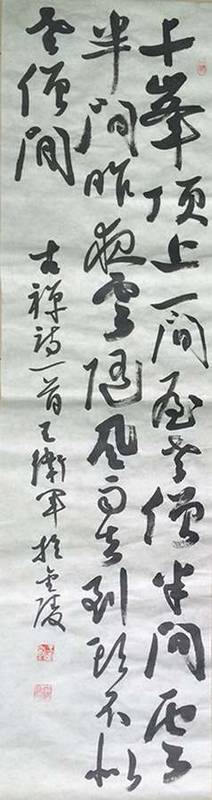 千峯顶上一间屋老僧半间雲
半间昨夜雲随风雨去到头不似
老僧闲
古禅诗一首王衛军於金陵